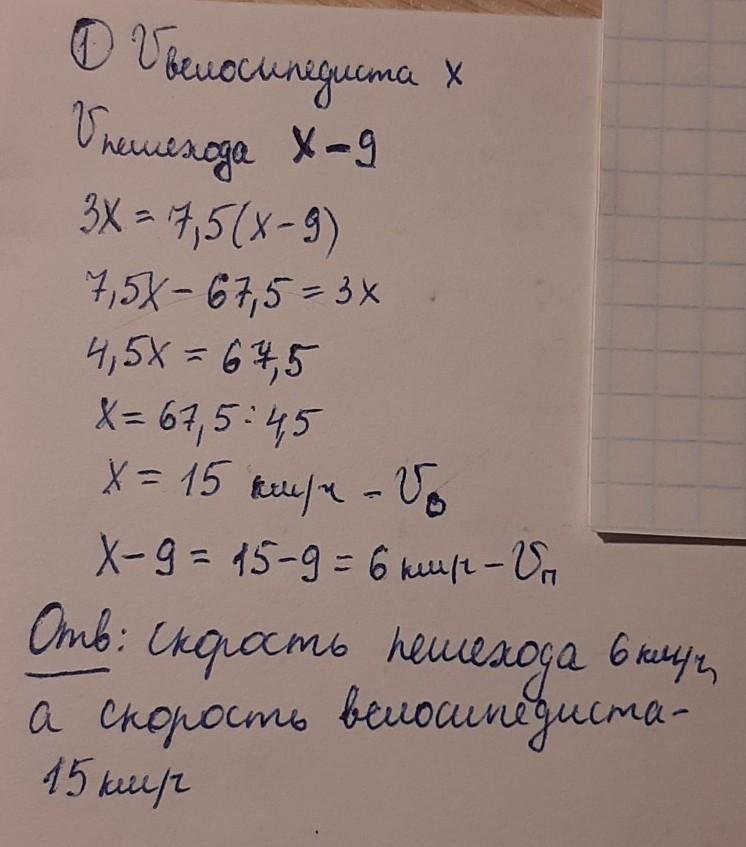 ① Vвелосипедиста x
Vпешехода x - 9
3x = 7,5(x - 9)
7,5x - 67,5 = 3x
4,5x = 67,5
x = 67,5 : 4,5
x = 15 км/ч - Vв
x - 9 = 15 - 9 = 6 км/ч - Vп
Отв: скорость пешехода 6 км/ч,
а скорость велосипедиста -
15 км/ч